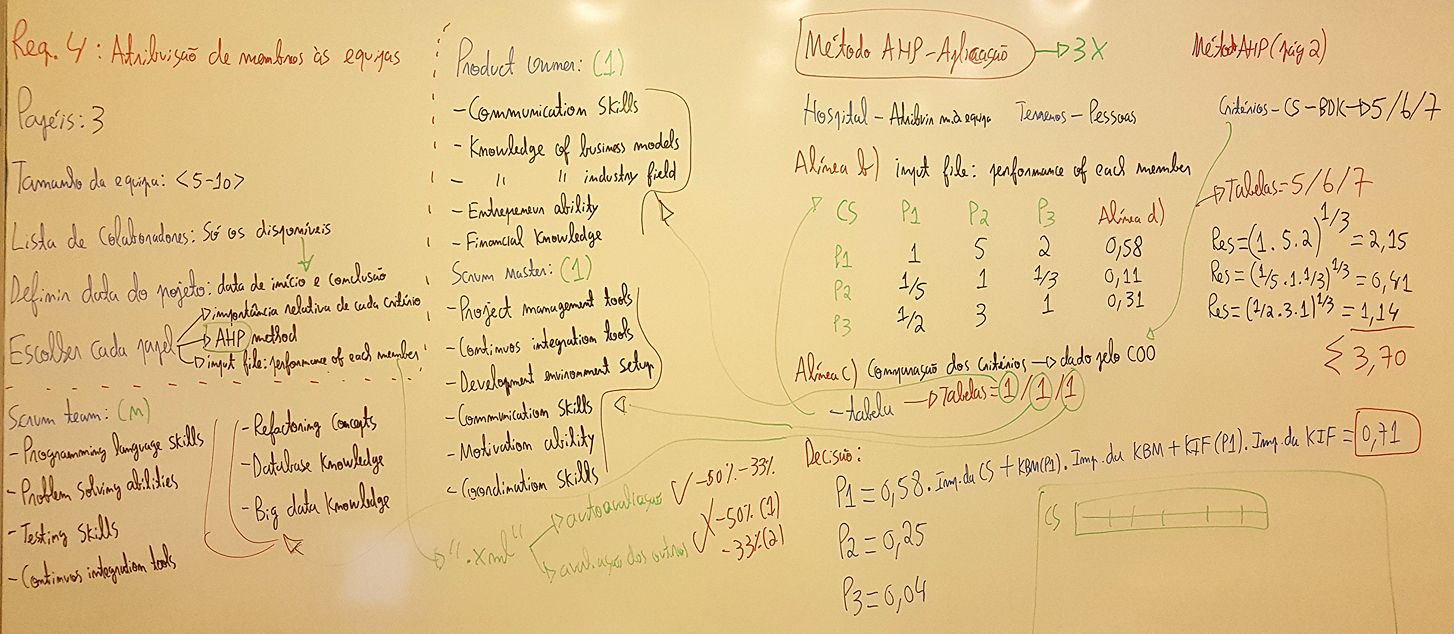 Req. 4: Atribuição de membros às equipas
Papéis: 3
Tamanho da equipa: <5-10>
Lista de Colaboradores: Só os disponíveis
Definir data do projeto: data de início e conclusão
Escolher cada papel
importância relativa de cada critério
AHP method
input file: performance of each member
Scrum team: (n)
- Programming language skills
- Problem solving abilities
- Testing Skills
- Continuos integration tools
- Refactoring Concepts
- Database Knowledge
- Big data Knowledge
Product Owner: (1)
- Communication Skills
- Knowledge of business models
- " " industry field
- Entrepreneur ability
- Financial Knowledge
Scrum Master: (1)
- Project management tools
- Continuos integration tools
- Development environment setup
- Communication Skills
- Motivation ability
- Coordination Skills
".xml"
autoavaliação ✓ -50% -33%
avaliação dos outros X -50% (1)
-33% (2)
Método AHP - Aplicação → 3X
Hospital - Atribuir m. à equipa Terrenos - Pessoas
Alínea b) input file: performance of each member
CS P1 P2 P3 Alínea d)
P1 1 5 2 0,58
P2 1/5 1 1/3 0,11
P3 1/2 3 1 0,31
Alínea c) Comparação dos Critérios → dado pelo COO
- tabela → Tabelas = 1/1/1
Decisão:
P1 = 0,58 . Imp. da CS + KBM(P1) . Imp. du KBM + KIF(P1) . Imp. du KIF = 0,71
P2 = 0,25
P3 = 0,04
CS
Método AHP (pág 2)
Critérios - CS - BDK → 5/6/7
→ Tabelas = 5/6/7
Res = (1 . 5 . 2)^1/3 = 2,15
Res = (1/5 . 1 . 1/3)^1/3 = 0,41
Res = (1/2 . 3 . 1)^1/3 = 1,14
Σ 3,70